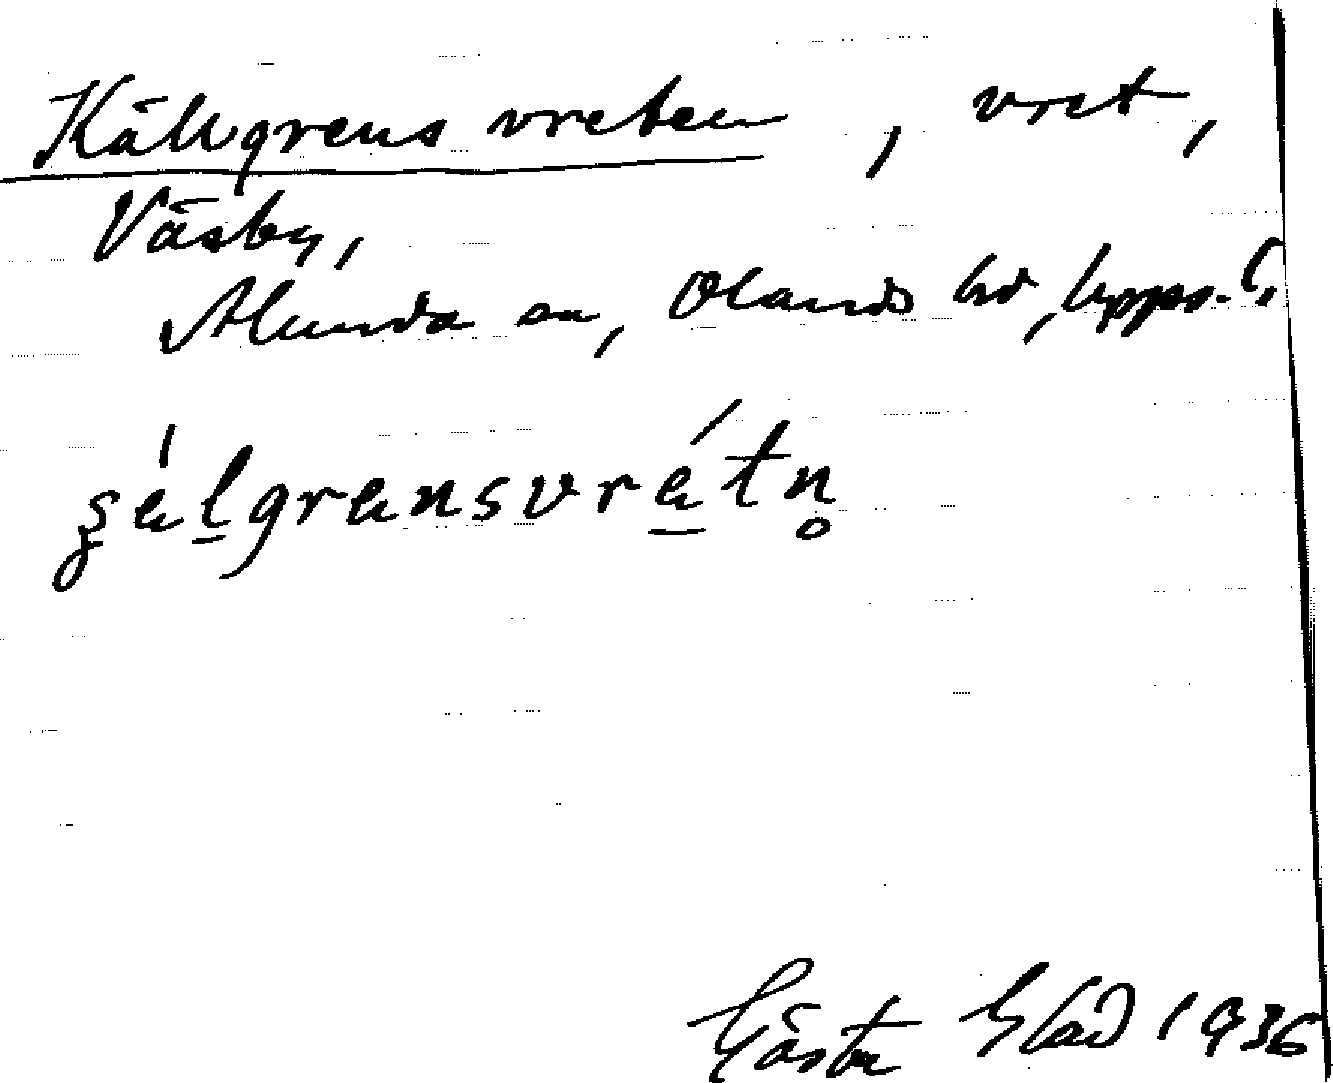 Källgrens vreten, vret,
Väsby,
Alunda sn, Olands hd, Upps. l.
ʂälgrensvrétn̥
Gösta 1936